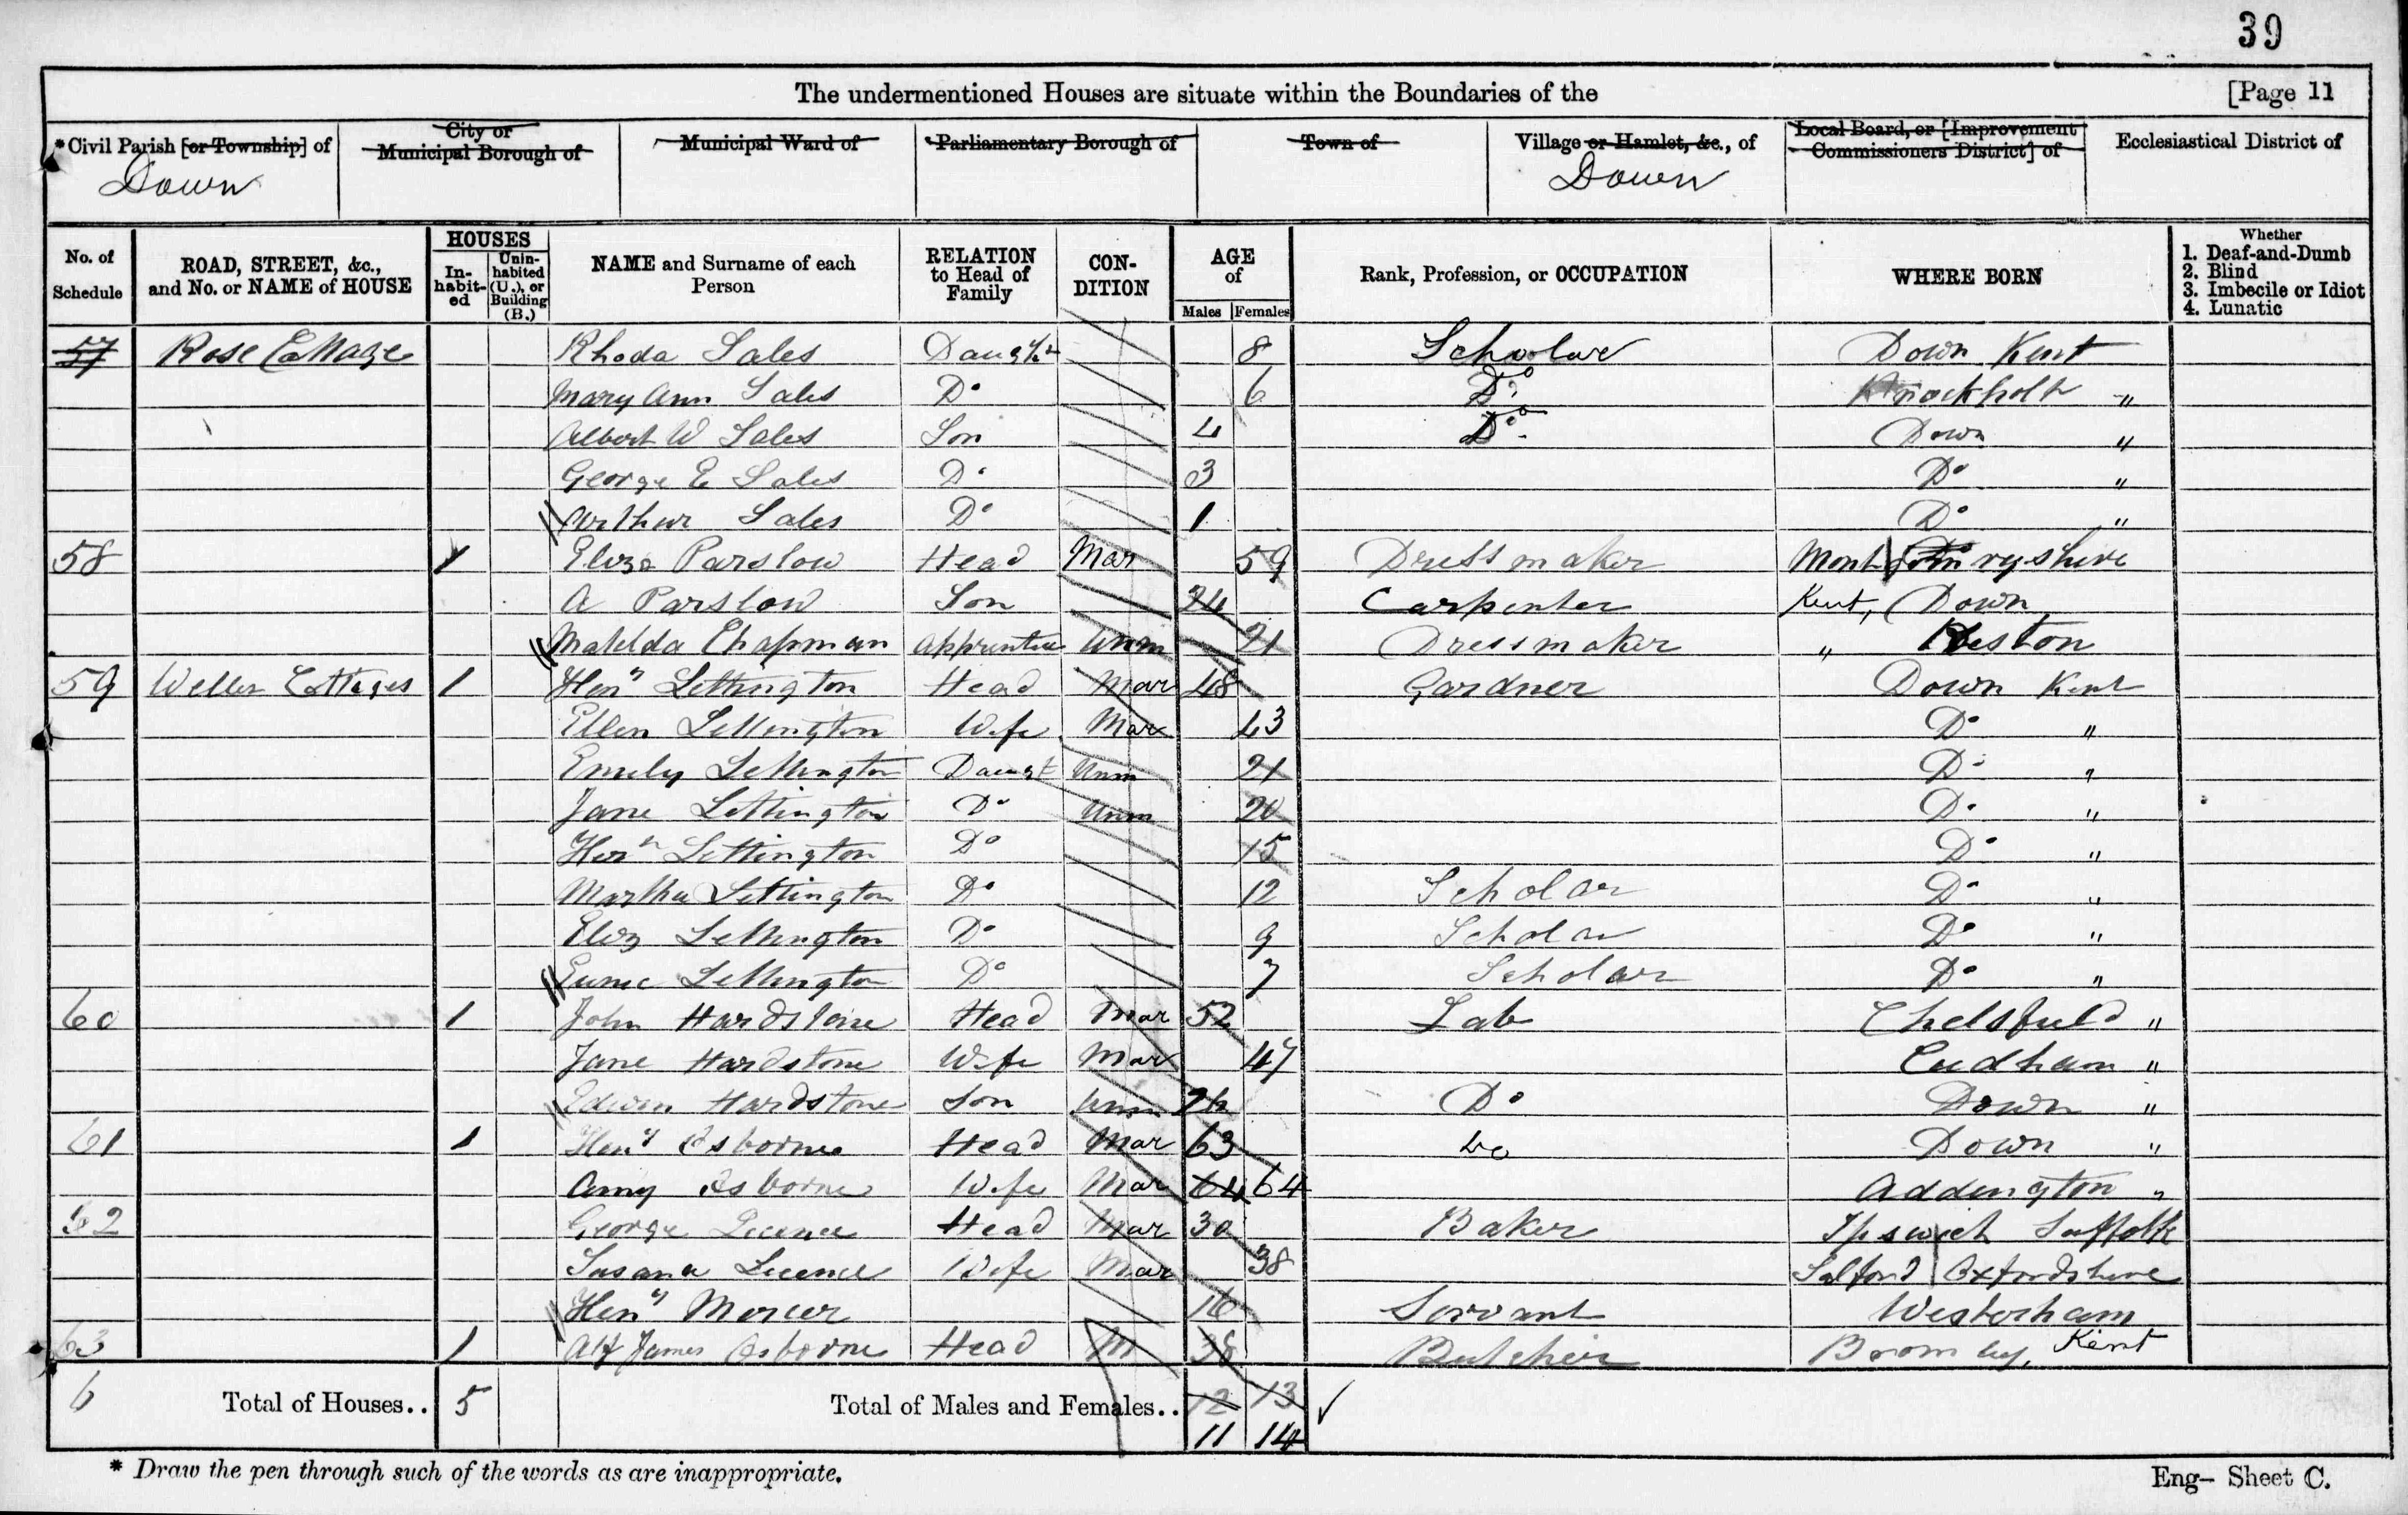 39
The undermentioned Houses are situate within the Boundaries of the [Page 11
*Civil Parish [or Township] of City or Municipal Borough of Municipal Ward of Parliamentary Borough of Town of Village or Hamlet, &c., of Local Board, or [Improvement Commissioners District] of Ecclesiastical District of
Down Down
No. of Schedule ROAD, STREET, &c., and No. or NAME of HOUSE HOUSES In-habit-ed Unin-habited (U.), or Building (B.) NAME and Surname of each Person RELATION to Head of Family CON-DITION AGE of Males Females Rank, Profession, or OCCUPATION WHERE BORN Whether 1. Deaf-and-Dumb 2. Blind 3. Imbecile or Idiot 4. Lunatic
57 Rose Cottage Rhoda Sales 8 Scholar Down Kent
Mary Ann Sales Do 6 Do Knockholt "
Albert W Sales Son 4 Do Down "
George E Sales Do 3 Do "
Arthur Sales Do 1 Do "
58 1 Eliza Parslow Head Mar 59 Dressmaker
A Parslow Son 24 Carpenter Kent, Down
Matelda Chapman Apprentice Unm 21 Dressmaker " Keston
59 Weller Cottages 1 Heny Lettington Head Mar 48 Gardner Down Kent
Ellen Lettington Wife Mar 43 Do "
Emily Lettington Daugt Unm 21 Do "
Jane Lettington Do Unm 20 Do "
Lettington Do 15 Do "
Martha Lettington Do 12 Scholar Do "
Eliz Lettington Do 9 Scholar Do "
Lettington Do 7 Scholar Do "
60 1 John Hardstone Head Mar 52 Lab Chelsfield "
Jane Hardstone Wife Mar 47 Cudham "
Edwin Hardstone Son Unm Do Down "
61 1 Heny Osborne Head Mar 63 Do Down "
Amy Osborne Wife Mar 64 64 Addington "
62 George Licence Head Mar 30 Baker Ipswich Suffolk
Susana Licence Wife Mar 38 Salford Oxfordshire
Heny Mercer 16 Servant Westerham
63 1 Alf James Osborne Head M 38 Butcher Bromley, Kent
6 Total of Houses.. 5 Total of Males and Females.. 12 13
11 14
* Draw the pen through such of the words as are inappropriate.
Eng- Sheet C.